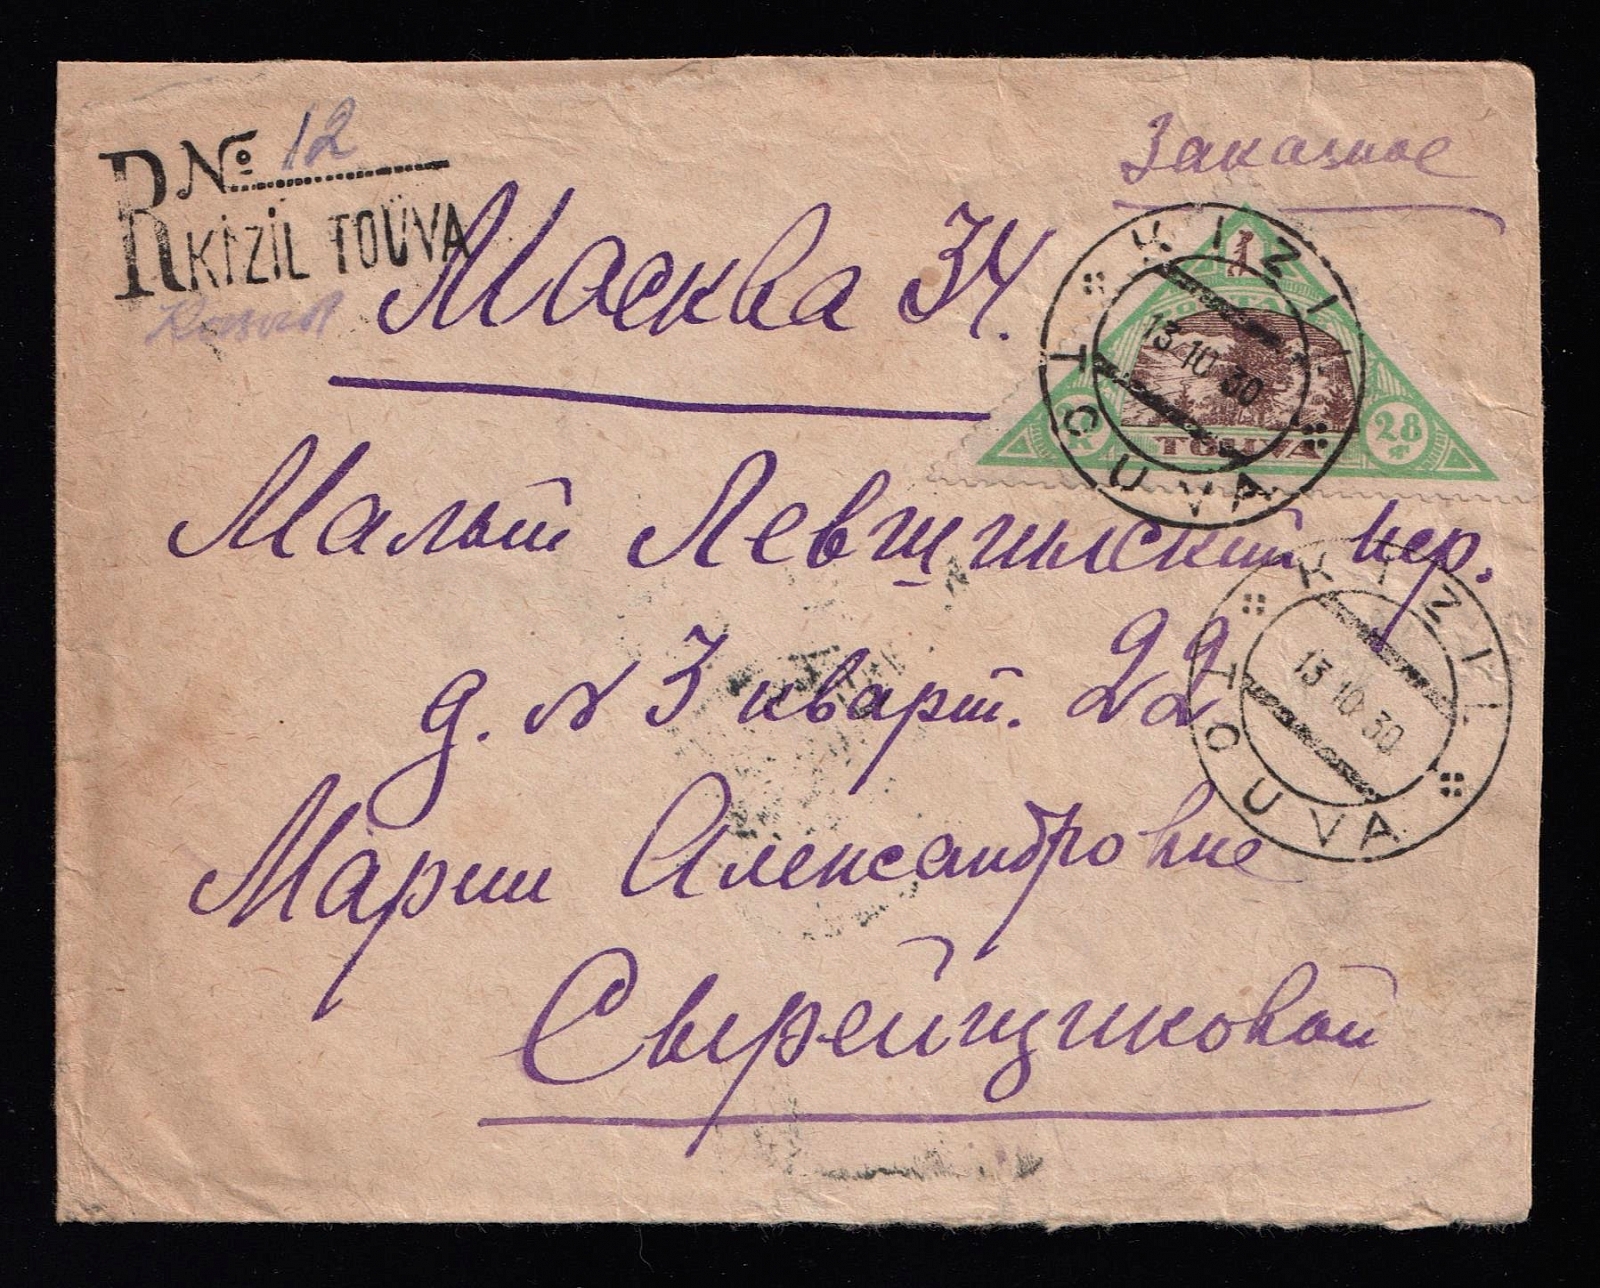 R № 12
KIZIL TOUVA
Заказное
Москва 34.
1
POSTAGE
K 28
TOUVA
KIZIL TOUVA
13 10 30
Малый Левшинский пер.
д. № 3 кварт. 22
KIZIL TOUVA
13 10 30
Марии Александровне
Сырейщиковой